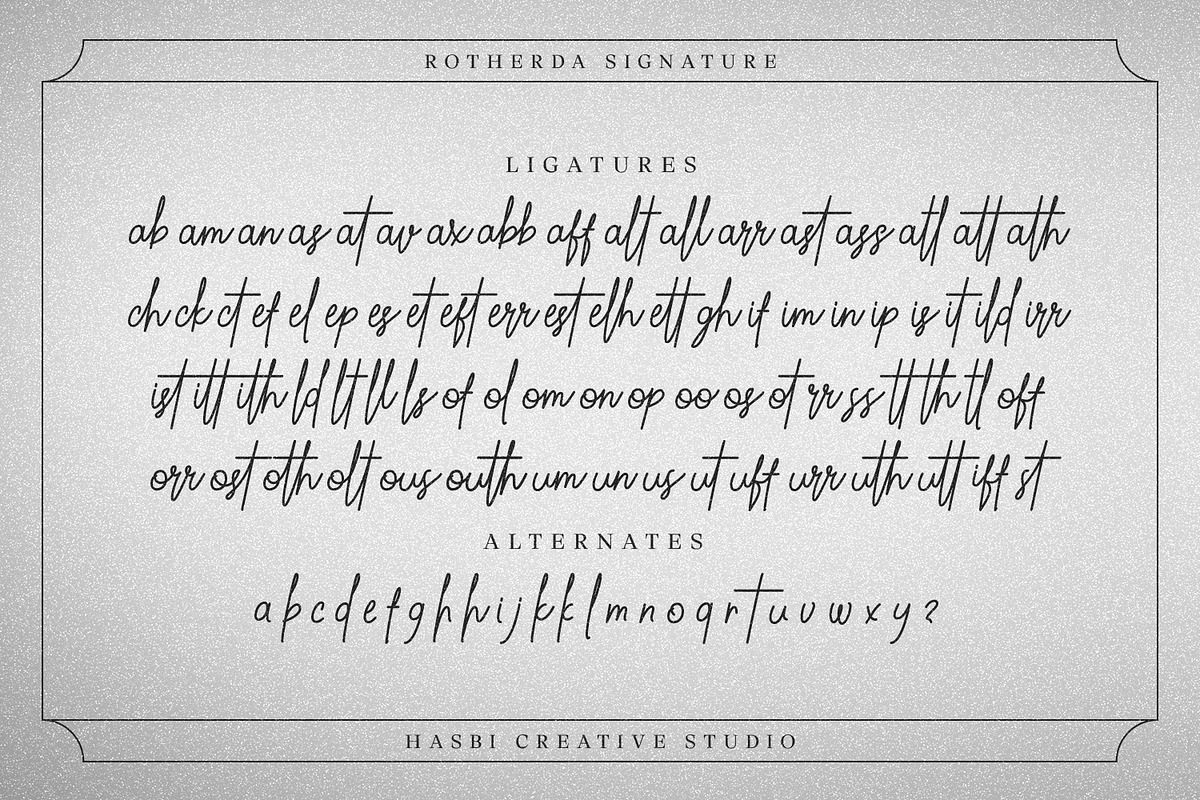 ROTHERDA SIGNATURE
LIGATURES
ab am an as at av ax abb aff alt all arr ast ass atl att ath
ch ck ct ef el ep es et eft err est elh ett gh if im in ip is it ild irr
ist itt ith ld lt ll ls of ol om on op oo os ot rr ss tt th tl oft
orr ost oth olt ous outh um un us ut uft urr uth utt ift st
ALTERNATES
a b c d e f g h h i j k k l m n o q r t u v w x y z
HASBI CREATIVE STUDIO